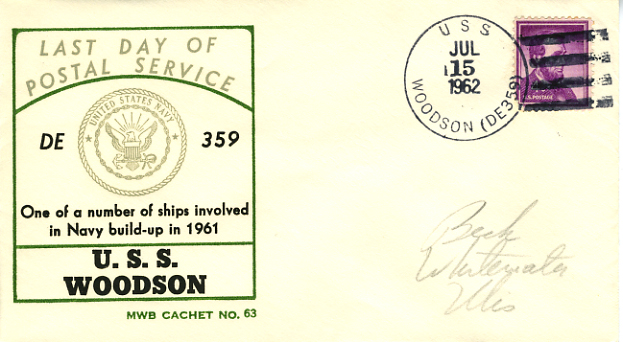 LAST DAY OF
POSTAL SERVICE
UNITED STATES NAVY
DE 359
One of a number of ships involved
in Navy build-up in 1961
U. S. S.
WOODSON
MWB CACHET NO. 63
USS
JUL
15
1962
WOODSON (DE359)
U.S. POSTAGE
Beck
Whitewater
Wis